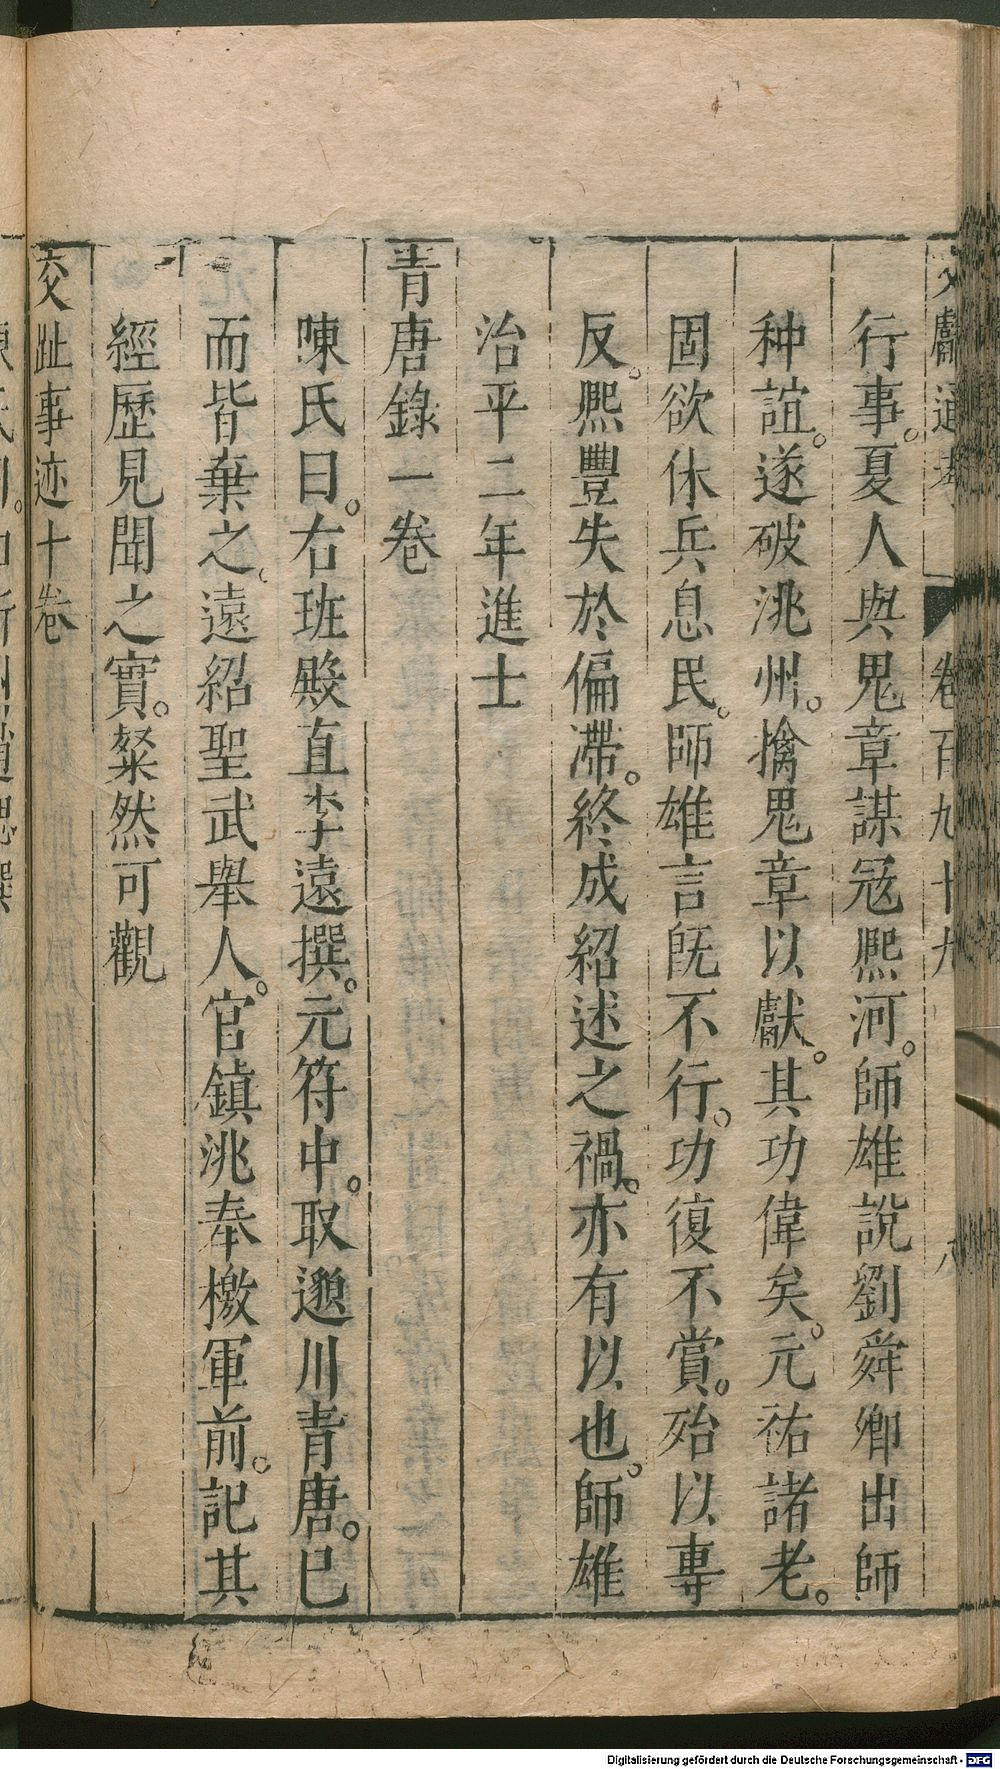 文獻通考 卷百九十九 八
行事。夏人與鬼章謀冦熙河。師雄說劉舜卿出師
种誼。遂破洮州。擒鬼章以獻。其功偉矣。元祐諸老。
固欲休兵息民。師雄言旣不行。功復不賞。殆以專
反。熙豐失於偏滯。終成紹述之禍。亦有以也。師雄
治平二年進士
青唐錄一卷
陳氏曰。右班殿直李遠撰。元符中。取邈川青唐。已
而皆棄之。遠紹聖武舉人。官鎮洮奉檄軍前。記其
經歷見聞之實。粲然可觀
交趾事迹十卷
Digitalisierung gefördert durch die Deutsche Forschungsgemeinschaft - DFG